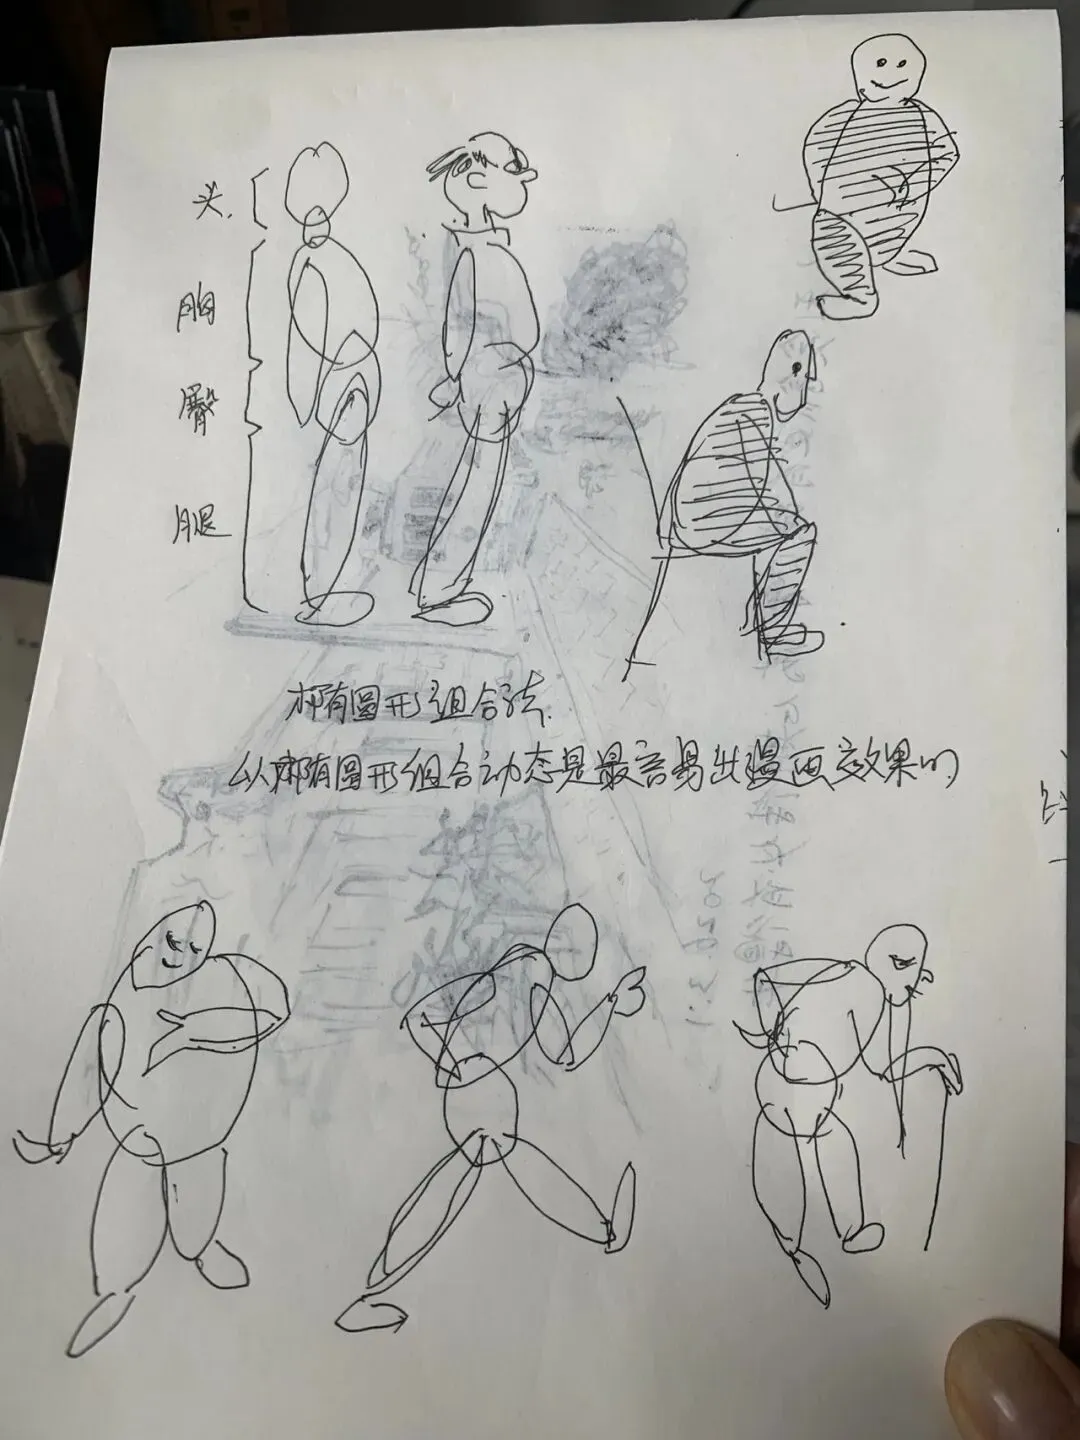 头.
胸
臀
腿
椭圆形组合法.
以椭圆形组合动态是最容易出漫画效果的